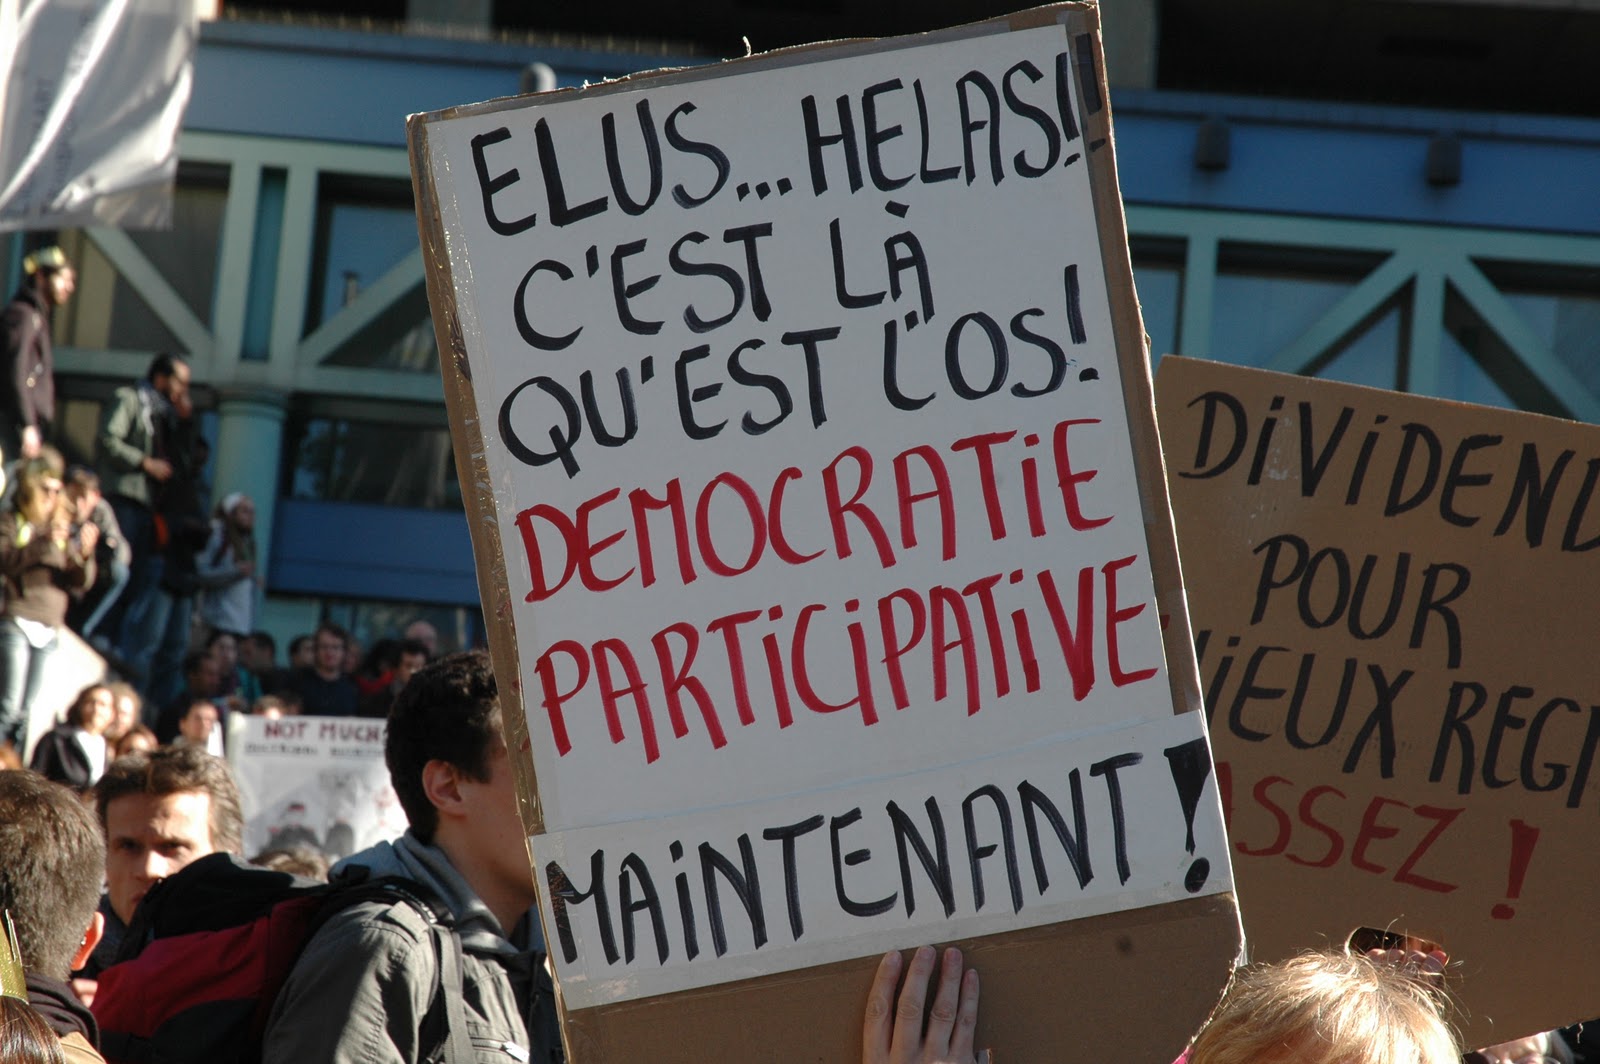 ELUS...HELAS!!
C'EST LÀ
QU'EST L'OS!
DEMOCRATIE
PARTICIPATIVE
MAINTENANT!
DIVIDEND
POUR
MIEUX REGN
ASSEZ!
NOT MUCH